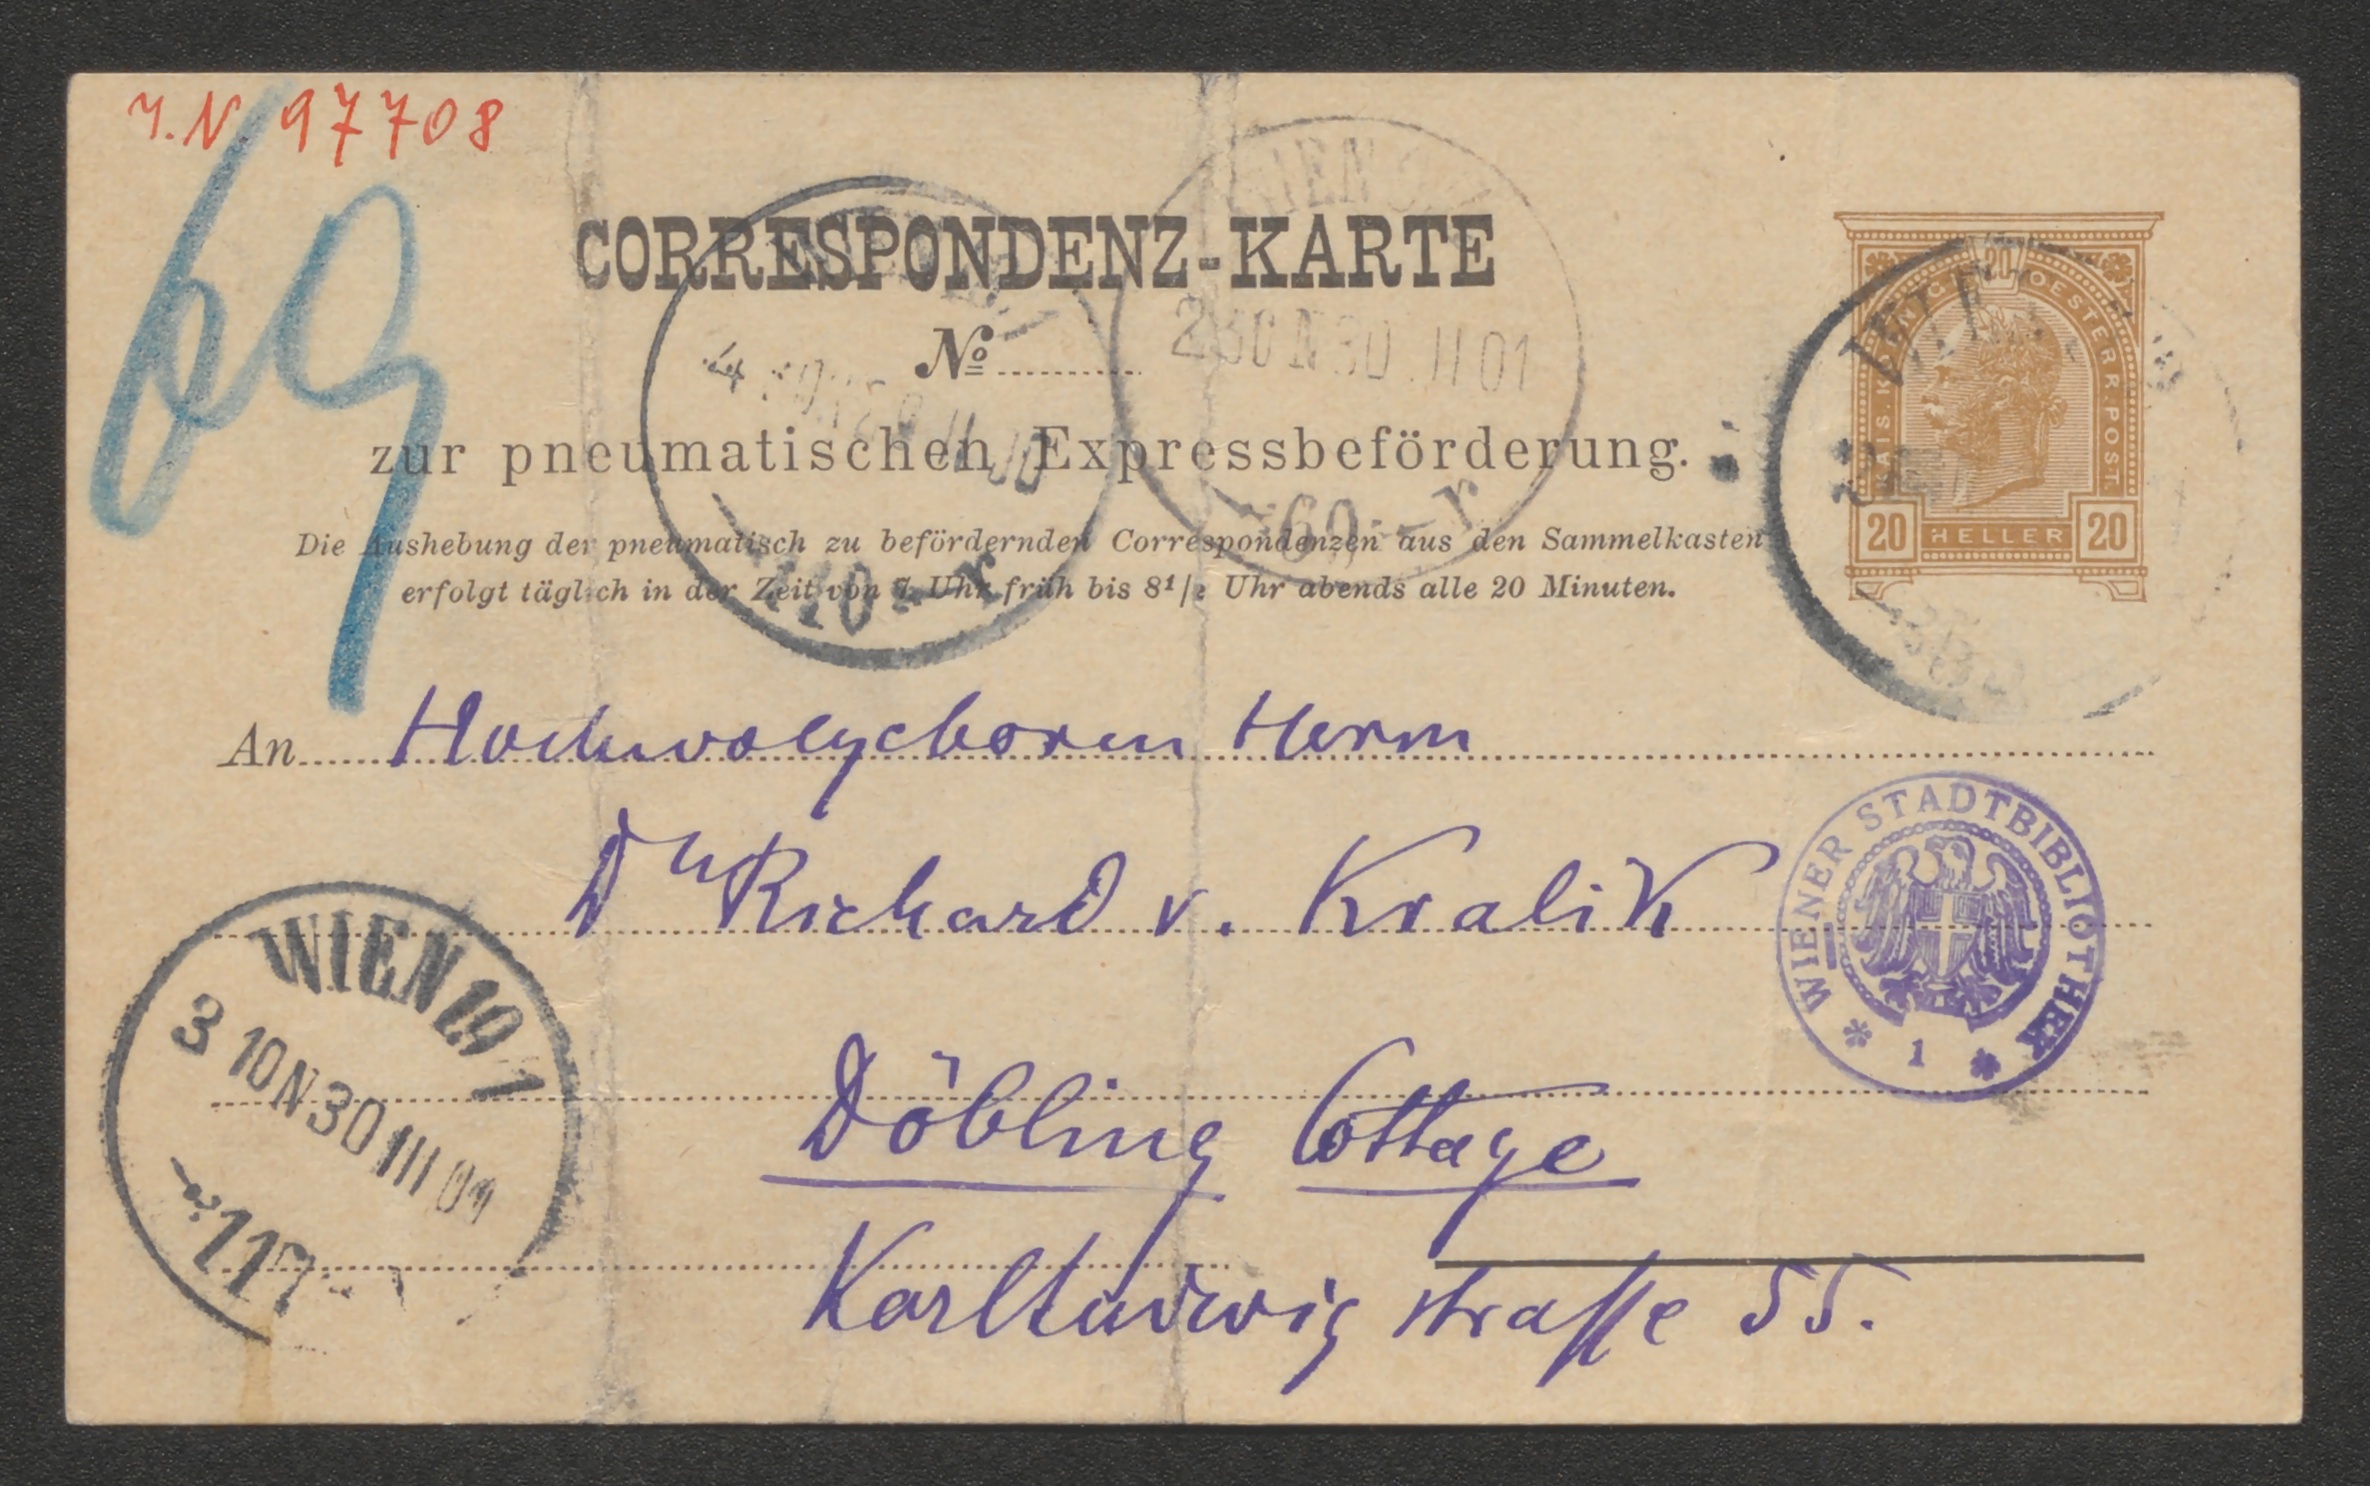 J.N 97708
69
CORRESPONDENZ-KARTE
No
zur pneumatischen Expressbeförderung.
Die Aushebung der pneumatisch zu befördernden Correspondenzen aus den Sammelkasten
erfolgt täglich in der Zeit von 7 Uhr früh bis 8½ Uhr abends alle 20 Minuten.
KAIS. KÖNIGL. OESTERR. POST.
20
20 HELLER 20
WIEN
2 30 N 30 III 01
69
110
An Hochwolgeboren Herrn
Dr Richard v. Kralik
Döbling Cottage
Karl Ludwig strasse 55.
WIENER STADTBIBLIOTHEK
1
WIEN 19/1
3 10 N 30 III 01
117